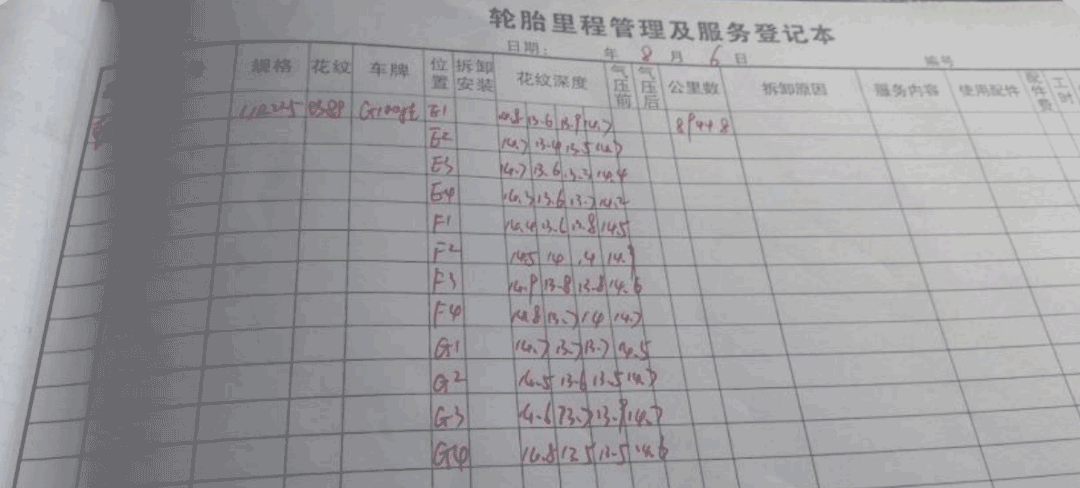 轮胎里程管理及服务登记本
日期： 年 8 月 6 日 编号
规格 花纹 车牌 位置 拆卸安装 花纹深度 气压前 气压后 公里数 拆卸原因 服务内容 使用配件 配件费 工时
E1 13.6 13.9 14.7
E2 14.7 13.4 13.5 14.7
E3 14.7 13.6 14.4
E4 14.3 13.6 13.7 14.2
F1 14.4 13.6 13.8 14.5
F2 14.5 14 14.9
F3 14.9 13.8 13.8 14.6
F4 14.8 13.7 14 14.7
G1 14.7 13.7 13.7 14.5
G2 14.5 13.6 13.5 14.7
G3 14.6 13.7 13.9 14.7
G4 14.8 13.5 14.6